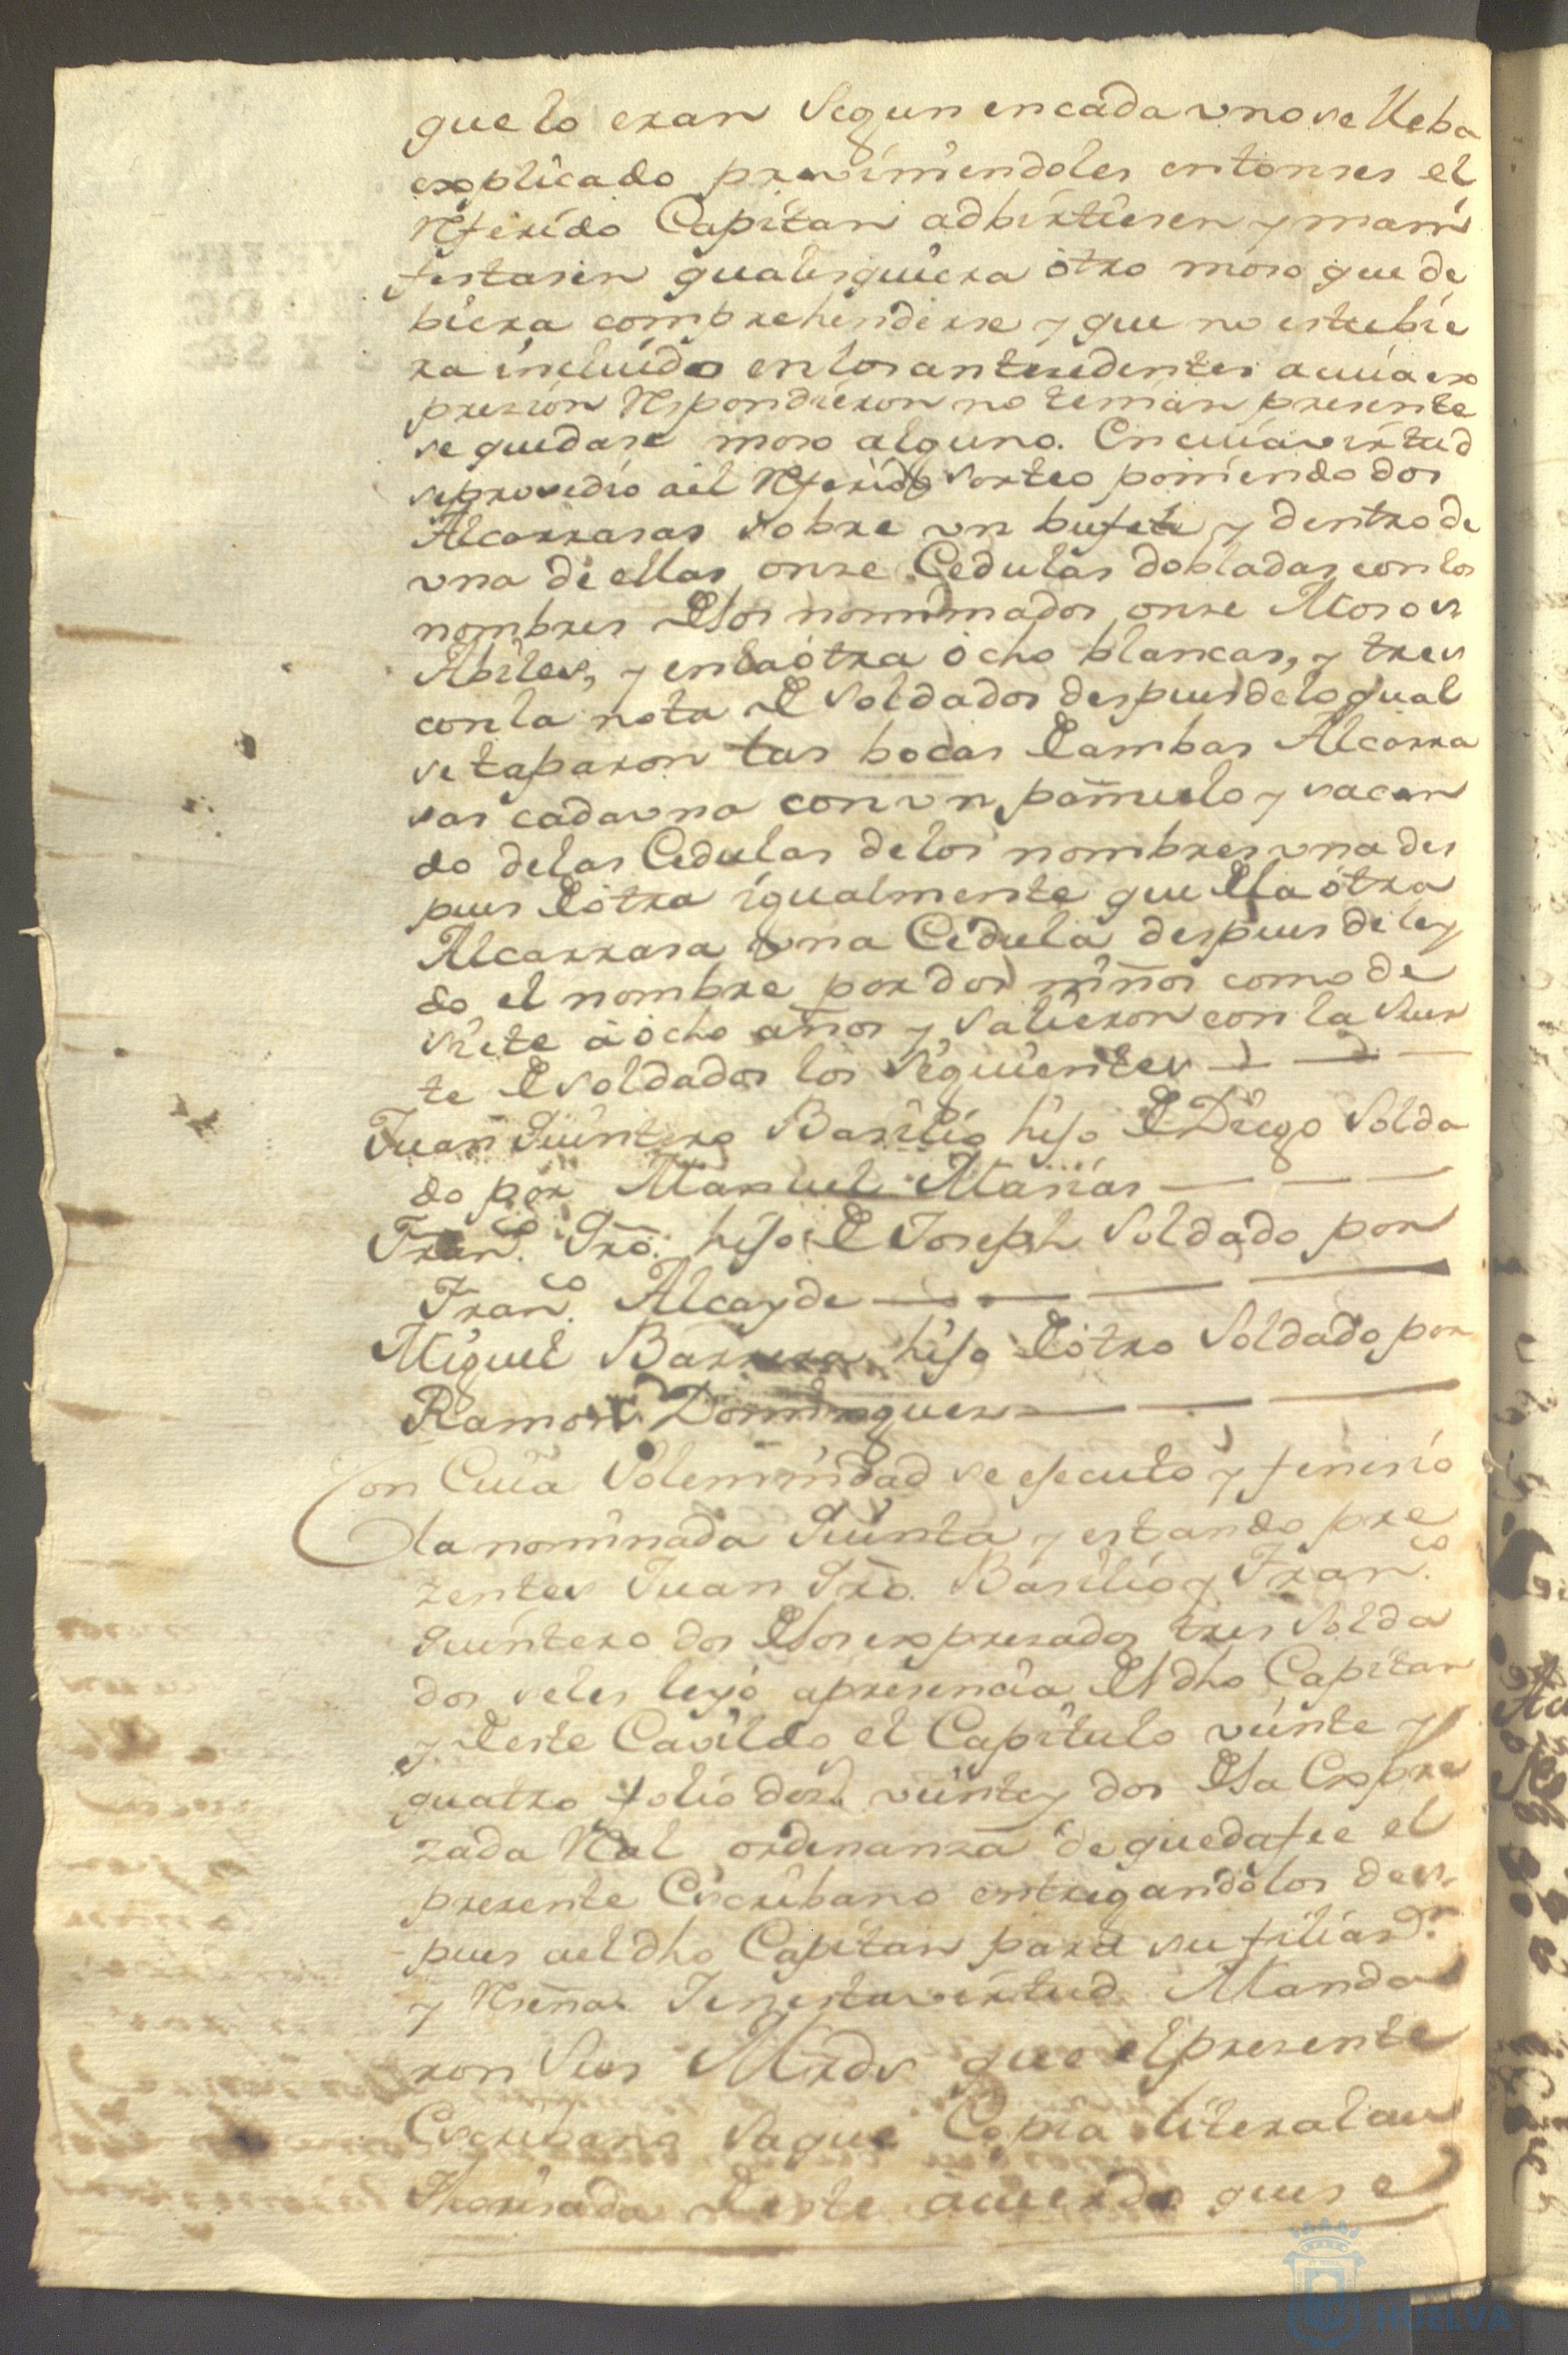 que lo eran Segun en cada uno se lleba
explicado previniendoles entonses el
Referido Capitan adbirtiesen y mani
festasen qualesquiera otro moso que de
biera comprehenderse y que no estubie
ra incluido en los antesedentes a cuia ex
presion Respondieron no tenian presente
se quedase moso alguno. En cuia virtud
se prosedio a el Referido Sorteo poniendo dos
Alcarrasas sobre un bufete y dentro de
una de ellas onse Cedulas dobladas con los
nombres de los nominados onse Mosos
Abiles, y en la otra ocho blancas, y tres
con la nota de Soldados despues de lo qual
se taparon las bocas de ambas Alcarra
sas cada una con un pañuelo y sacan
do de las Cedulas de los nombres una des
pues de otra igualmente que de la otra
Alcarrasa una Cedula despues de ley
do el nombre por dos niños como de
siete a ocho años y Salieron con la Suer
te de Soldados los Siguientes
Juan Quintero Basilio hijo de Diego Solda
do por Manuel Masias
Fran.co Qro. hijo de Joseph Soldado por
Fran.co Alcayde
Miguel Barrera hijo de otro Soldado por
Ramon Dominguez
Con Cuia Solemnidad se efecuto y fenesio
la nominada Quinta y estando pre
zentes Juan Qro. Basilio y Fran.co
Quintero dos de los expresados tres Solda
dos seles leyó apresencia del dho Capitan
y de este Cavildo el Capitulo veinte y
quatro folio veinte y dos de la Expre
zada Real ordenanza de que da fee el
presente Escribano entregandolos des
pues a el dho Capitan para su filiaz.n
y Reseña. Y en esta virtud Manda
ron Sus Mrds que el presente
Escribano Saque Copia literal au
thorisada de este acuerdo que se
HUELVA